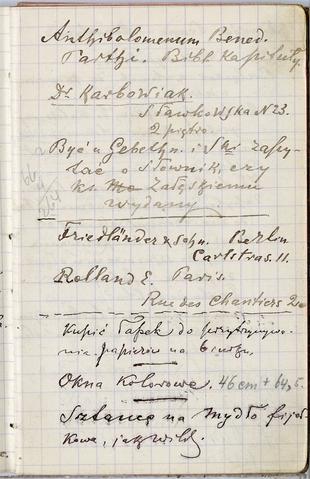 Anthibolomenum Bened.
Parthi. Bibl. Kapituły.
Dr. Karbowiak.
Sławkowska N 23.
2 piętro.
Być u Gebethn. i Ski zapy-
tać o Słownik, czy
ks. Załęskiemu
wydany
Friedländer & Sohn. Berlin
Carlstras. 11.
Rolland E. Paris.
Rue des Chantiers 2
Kupić łapek do przytrzymywa-
nia papieru na biurku.
Okna kolorowe. 46 cm + 64,5.
Sztance na mydło fijoł-
kowe, jaz wild.